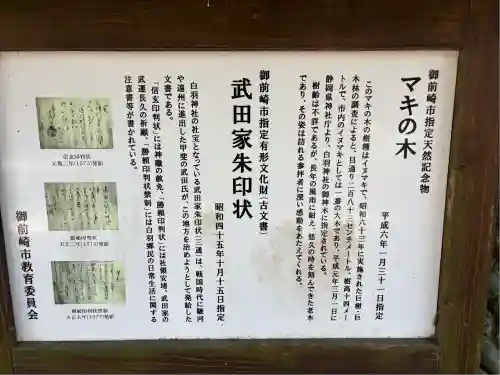 御前崎市指定天然記念物
マキの木
平成六年一月三十一日指定
このマキの木の樹種はイヌマキで、昭和六十三年に実施された巨樹・巨
木林の調査によると、目通り二百八十二センチメートル、樹高十四メー
トルで、市内のイヌマキとしては一番の大木であり、平成元年三月一日に
静岡県神社庁より、白羽神社の御神木に指定されている。
樹齢は不詳であるが、長年の風雨に耐え、悠久の時を刻んできた老木
であり、その姿は訪れる参拝者に深い感動をあたえてくれる。
御前崎市指定有形文化財（古文書）
武田家朱印状
昭和四十五年十月十五日指定
白羽神社の社宝となっている武田家朱印状（三通）は、戦国時代に駿河
や遠州に進出した甲斐の武田氏が、この地方を治めようとして発給した
文書である。
「信玄印判状」には神職の赦免、「勝頼印判状」には社領安堵、武田家の
武運長久の祈願、「勝頼印判状禁制」には白羽郷民の日常生活に関する
注意書等が書かれている。
信玄印判状
元亀三年（1572）発給
勝頼印判状
天正二年（1574）発給
勝頼印判状禁制
天正五年（1577）発給
御前崎市教育委員会